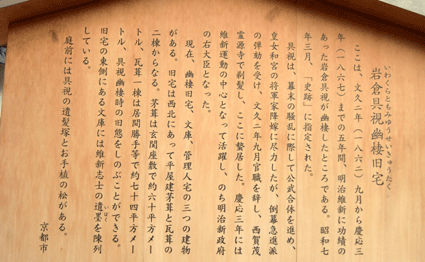 いわくらともみゆうせいきゅうたく
岩倉具視幽棲旧宅
ここは、文久二年（一八六二）九月から慶応三
年（一八六七）までの五年間、明治維新に功績の
あった岩倉具視が幽棲したところである。昭和七
年三月、「史跡」に指定された。
具視は、幕末の騒乱に際して公武合体を進め、
皇女和宮の将軍家降嫁に尽力したが、倒幕急進派
の弾劾を受け、文久二年九月官職を辞し、西賀茂
霊源寺で剃髪し、ここに贅居した。慶応三年には
維新運動の中心となって活躍し、のち明治新政府
の右大臣となった。
現在、幽棲旧宅、文庫、管理人宅の三つの建物
がある。旧宅は西北にあって平屋建茅葺と瓦葺の
二棟からなる。茅葺は玄関座敷で約六十平方メー
トル、瓦葺一棟は居間勝手等で約七十四平方メー
トル、具視幽棲時の旧態をしのぶことができる。
旧宅の東側にある文庫には維新志士の遺墨を陳列
いぼく
している。
庭前には具視の遺髪塚とお手植の松がある。
京都市